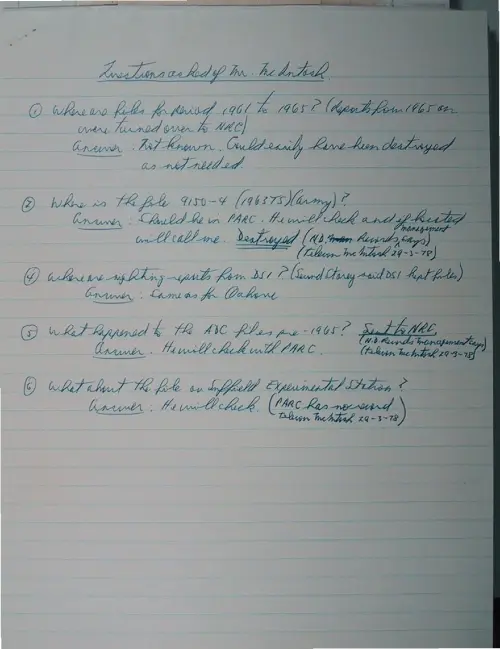 Questions asked of Mr. McIntosh.
① Where are files for period 1961 to 1965? (Reports from 1965 on
were turned over to NRC)
Answer: Not known. Could easily have been destroyed
as not needed.
② Where is the file 9150-4 (1963 TS) (army)?
Answer: Should be in PARC. He will check and if located
will call me. Destroyed (N.D. Records management says)
(telecon McIntosh 29-3-78)
④ Where are sighting reports from DSI? (Said DSI kept files)
Answer: Same as for above
⑤ What happened to the ADC files pre-1965? Sent to NRC
(N.D. Records management says)
Answer: He will check with PARC. (telecon McIntosh 29-3-78)
⑥ What about the file on Suffield Experimental Station?
Answer: He will check. (PARC has no record)
telecon McIntosh 29-3-78)